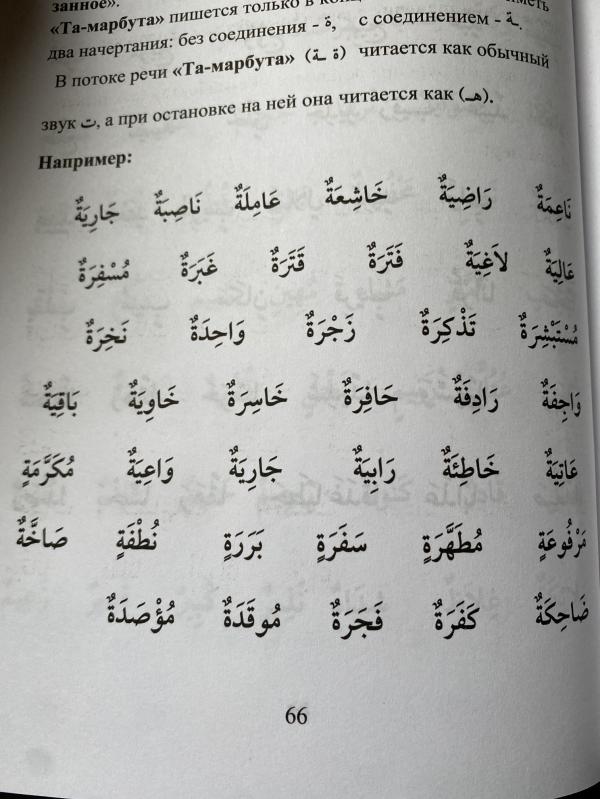 занное».
«Та-марбута» пишется только в конц
два начертания: без соединения - ة, с соединением - ـة.
В потоке речи «Та-марбута» (ة ـة) читается как обычный
звук ت, а при остановке на ней она читается как (هـ).
Например:
نَاعِمَةٌ رَاضِيَةٌ خَاشِعَةٌ عَامِلَةٌ نَاصِبَةٌ جَارِيَةٌ
عَالِيَةٌ لاَغِيَةٌ فَتَرَةٌ قَتَرَةٌ غَبَرَةٌ مُسْفِرَةٌ
مُسْتَبْشِرَةٌ تَذْكِرَةٌ زَجْرَةٌ وَاحِدَةٌ نَخِرَةٌ
وَاجِفَةٌ رَادِفَةٌ حَافِرَةٌ خَاسِرَةٌ خَاوِيَةٌ بَاقِيَةٌ
عَاتِيَةٌ خَاطِئَةٌ رَابِيَةٌ جَارِيَةٌ وَاعِيَةٌ مُكَرَّمَةٍ
مَرْفُوعَةٍ مُطَهَّرَةٍ سَفَرَةٍ بَرَرَةٍ نُطْفَةٍ صَاخَّةٌ
ضَاحِكَةٌ كَفَرَةٌ فَجَرَةٌ مُوقَدَةٌ مُؤْصَدَةٌ
66